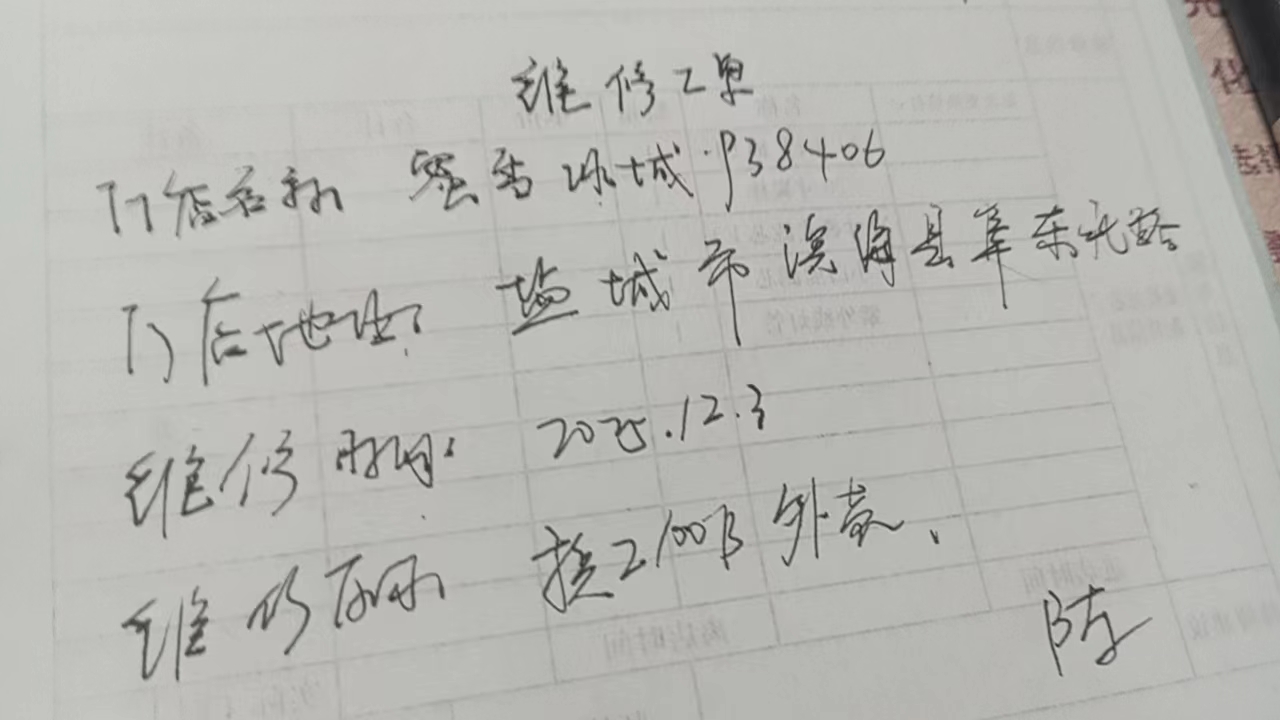 维修工单
门店名称 蜜雪冰城·938406
门店地址: 盐城市滨海县阜东北路
维修时间: 2025.12.3
维修原因 换Z100B外壳、
陈